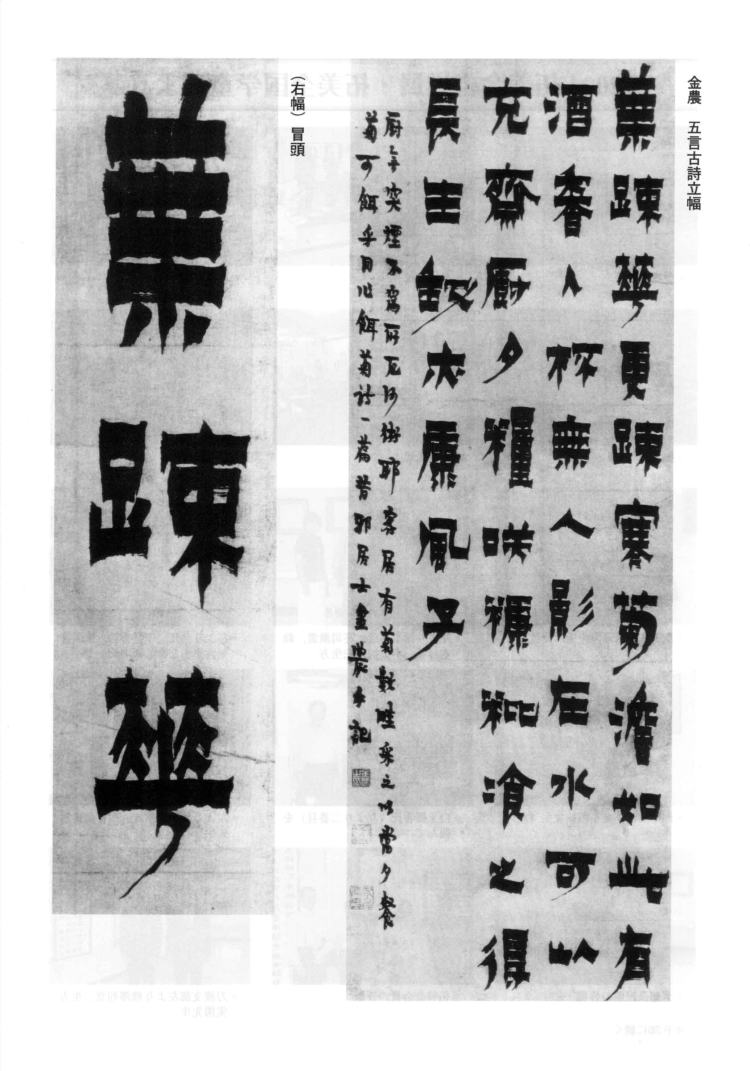 金農　五言古詩立幅
葉踈華更踈寒菊澹如此有
酒香入杯無人影在水可以
充齋厨夕糧咲穅粃飡之得
長生夫康風子
厨突煙不為所厄何術耶客居有菊數畦采之以當夕餐
菊可餌乎因作餌菊詩一篇昔邪居士農手記
（右幅）冒頭
葉踈華